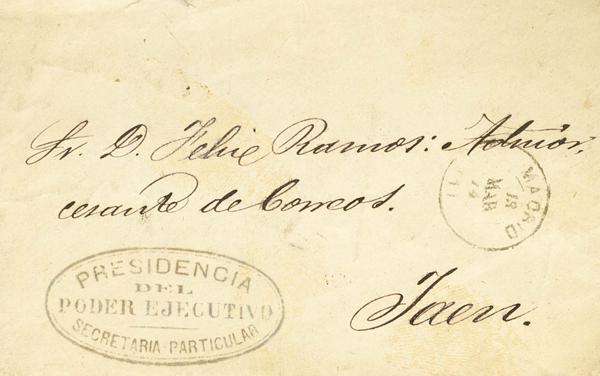 Sr. D. Felix Ramos: Admor.
cesante de Correos.
Jaen.
MADRID
18
MAR
74
PRESIDENCIA
DEL
PODER EJECUTIVO
SECRETARIA PARTICULAR